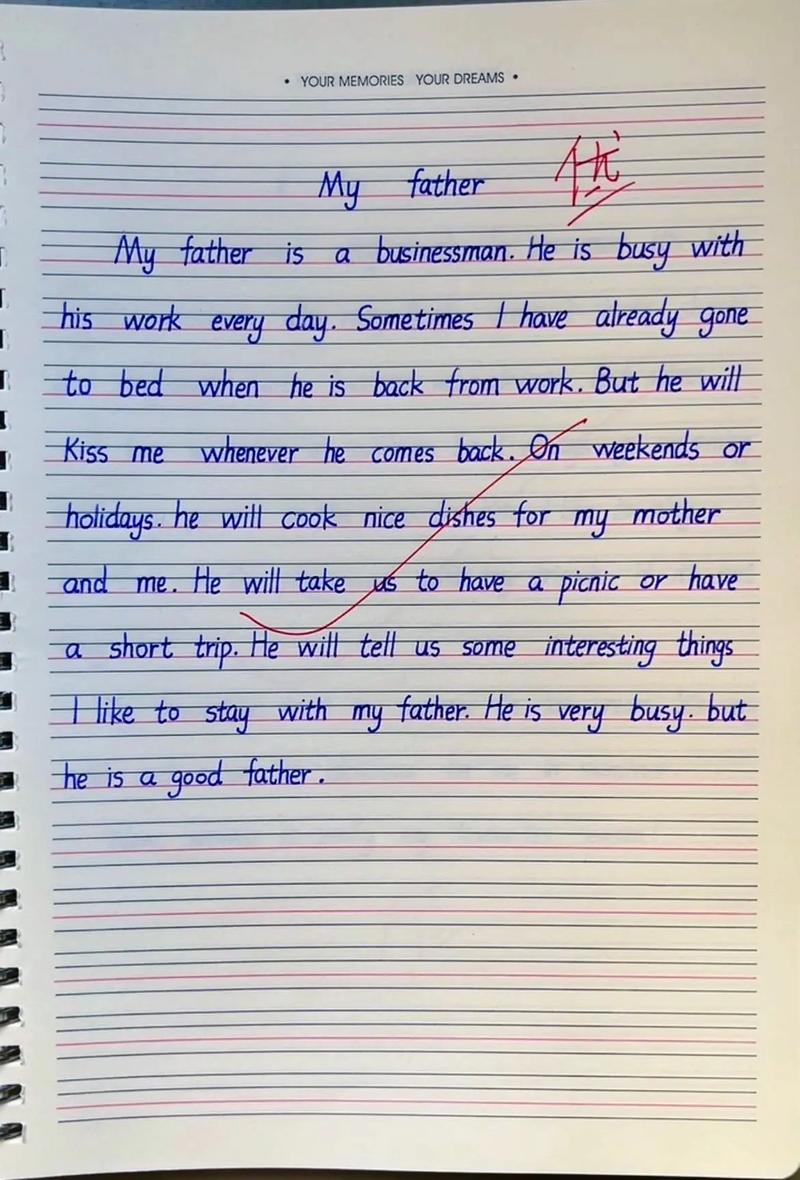 • YOUR MEMORIES YOUR DREAMS •
My father 优
My father is a businessman. He is busy with
his work every day. Sometimes I have already gone
to bed when he is back from work. But he will
Kiss me whenever he comes back. On weekends or
holidays. he will cook nice dishes for my mother
and me. He will take us to have a picnic or have
a short trip. He will tell us some interesting things
I like to stay with my father. He is very busy. but
he is a good father.